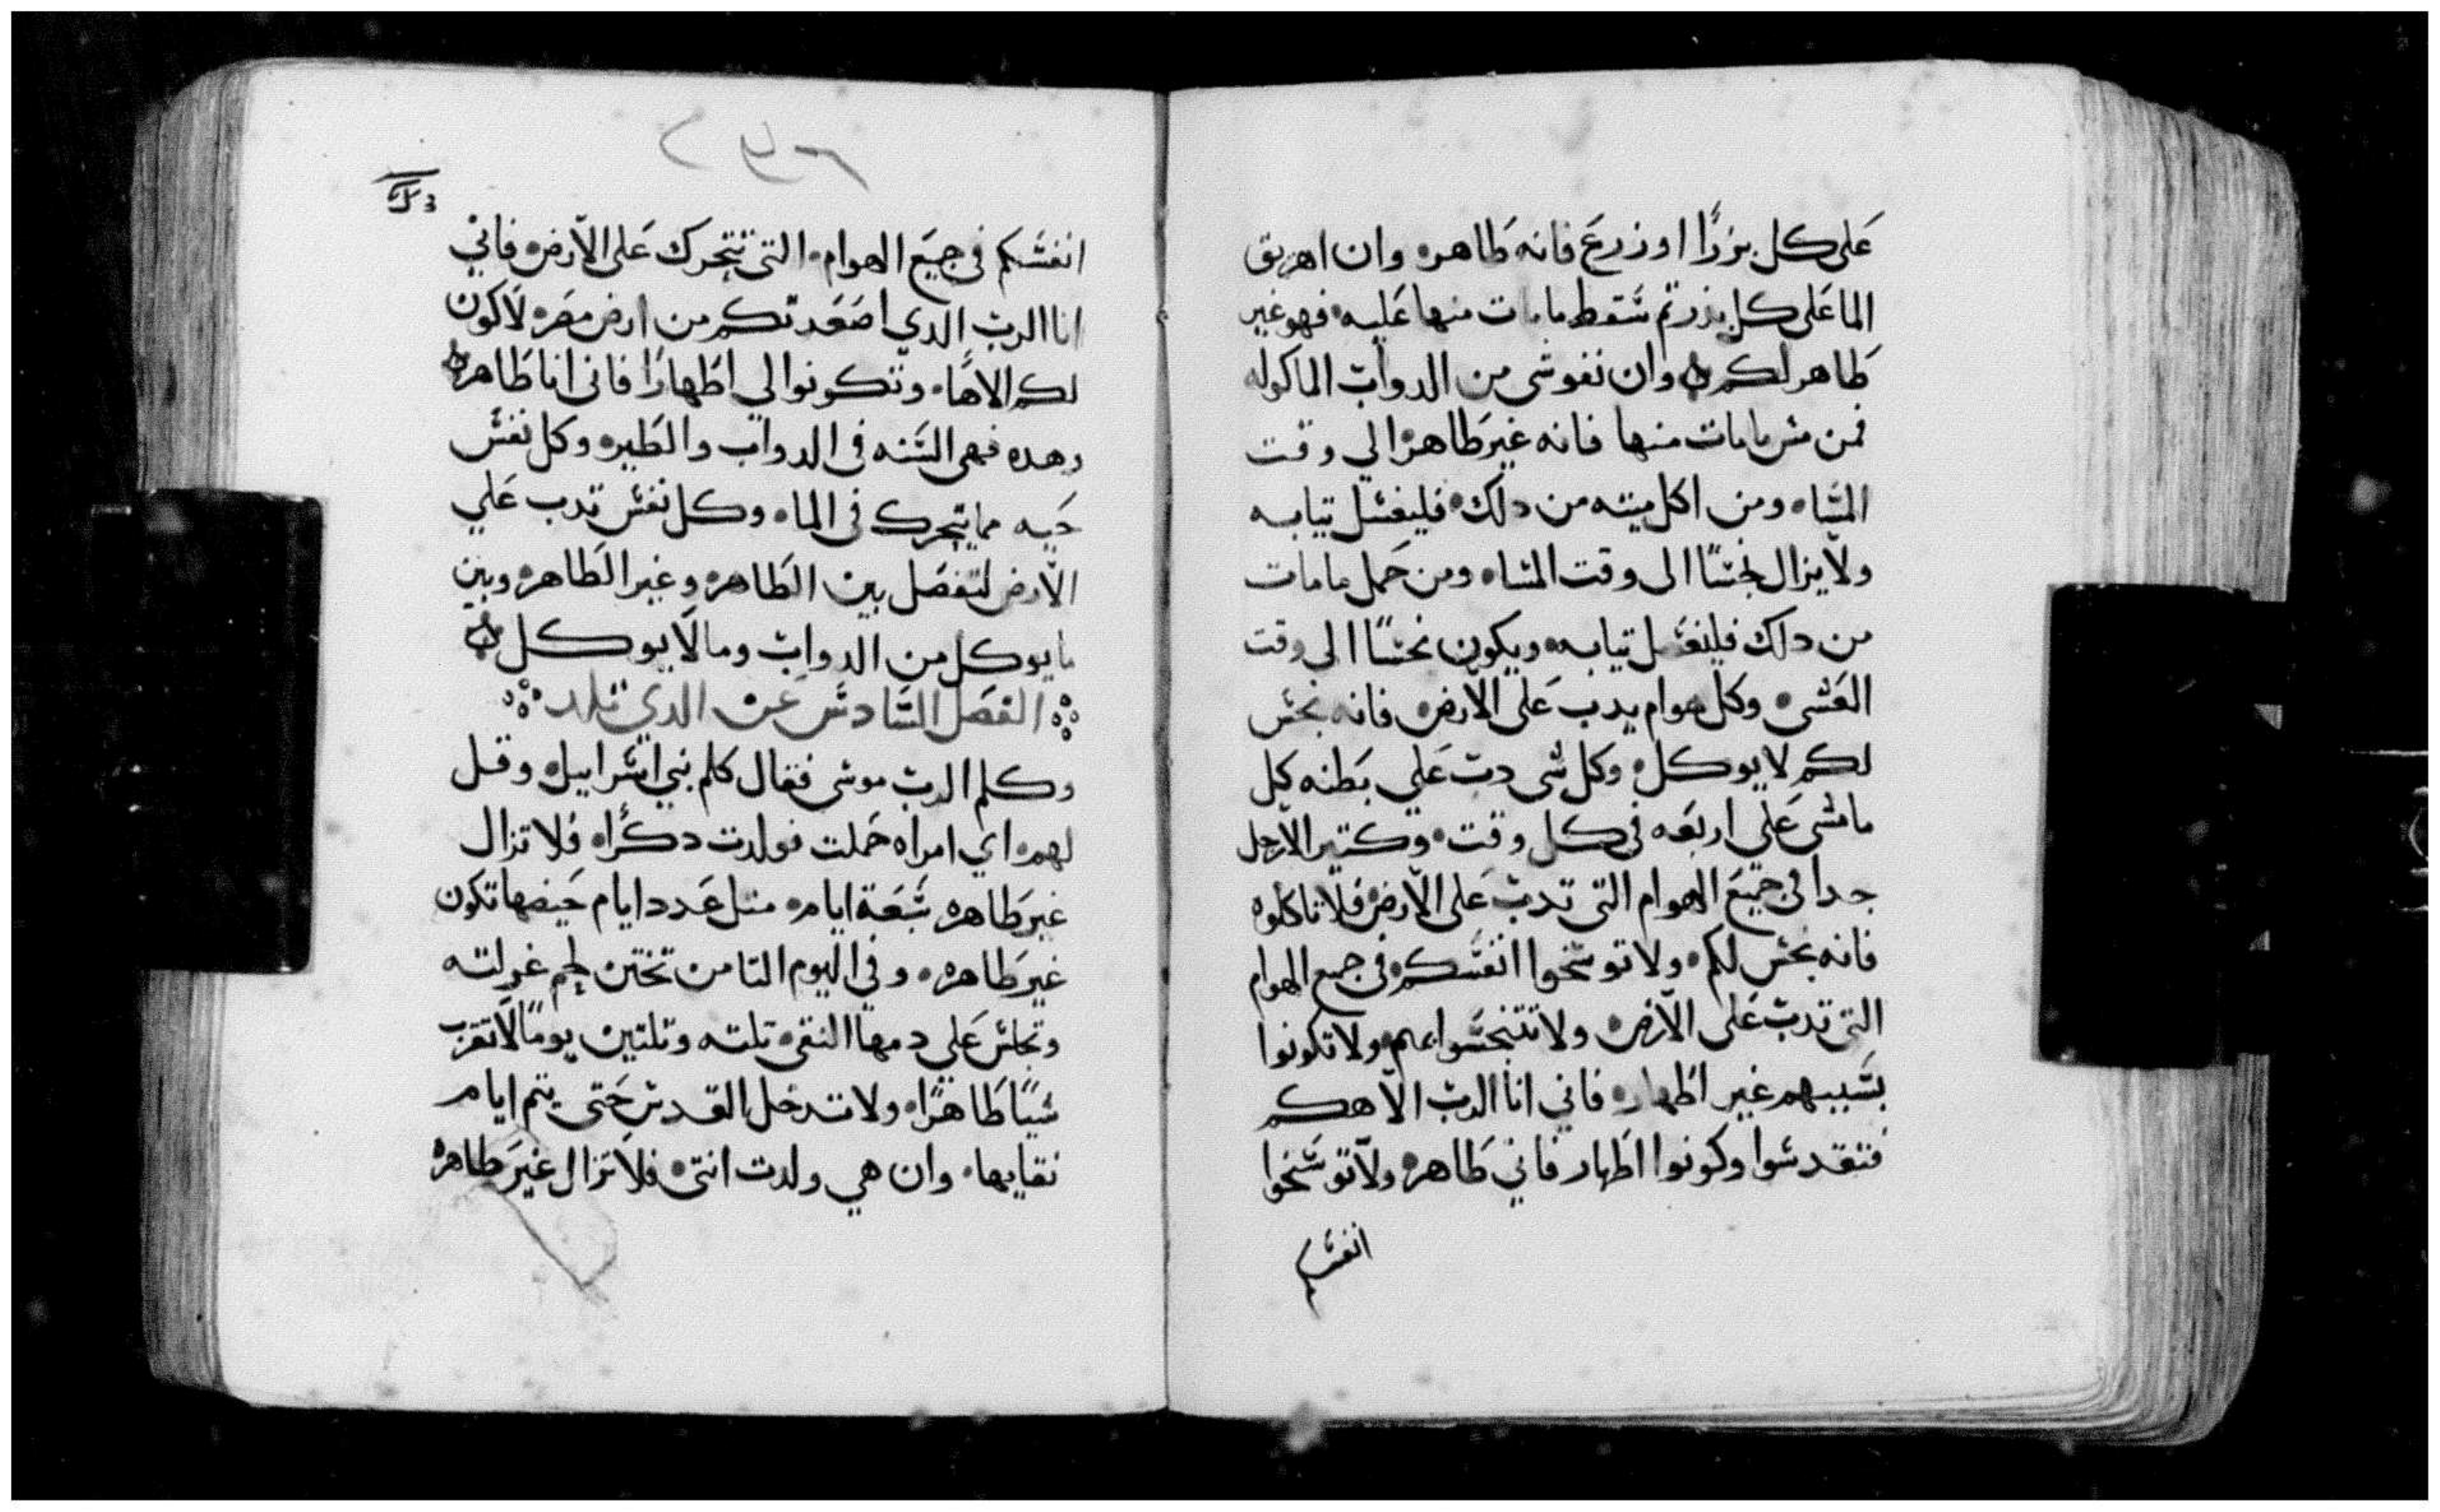 على كل بزرًا او زرع فانه طاهر وان اهريق
الما على كل بذر تم سقط مامات منها عليه فهو غير
طاهر لكم وان نفوشى من الدواب الماكوله
فمن مس مامات منها فانه غير طاهرا الي وقت
المسا ومن اكل ميته من دلك فليغسل تيابه
ولا يزال نجسًا الى وقت المسا ومن حمل مامات
من دلك فليغسل تيابه ويكون نجسًا الى وقت
العشى وكل هوام يدب على الارض فانه نجس
لكم لا يوكل وكل شى دب على بطنه كل
مامشى على اربعه في كل وقت وكتير الارجل
جدا في جميع الهوام التى تدب على الارض فلا تاكلوه
فانه نجس لكم ولا توسخوا انفسكم فى جميع الهوام
التى تدب على الارض ولا تتنجسوا بهم ولا تكونوا
بسببهم غير اطهار فاني انا الرب الاهكم
فتقدسوا وكونوا اطهار فاني طاهر ولا توسخوا
انفسكم
٢٣٦
انفسكم في جميع الهوام التى تتحرك على الارض فاني
انا الرب الدي اصعدتكم من ارض مصر لاكون
لكم الاهًا وتكونوا لي اطهارًا فاني انا طاهر
وهده فهى السنه في الدواب والطير وكل نفس
حيه مما يتحرك في الما وكل نفس تدب علي
الارض لتفصل بين الطاهر وغير الطاهر وبين
ما يوكل من الدواب وما لا يوكل
الفصل السادس عن الدي تلد
وكلم الرب موسى فقال كلم بني اسراييل وقل
لهم اي امراه حملت فولدت دكرًا فلا تزال
غير طاهره سبعة ايام متل عدد ايام حيضها تكون
غير طاهره وفي اليوم التامن تختن لحم غرلته
وتجلس على دمها النقى تلته وتلتين يومًا لا تقرب
شيًا طاهرًا ولا تدخل القدس حتى يتم ايام
نقايها وان هي ولدت انتى فلا تزال غير طاهره